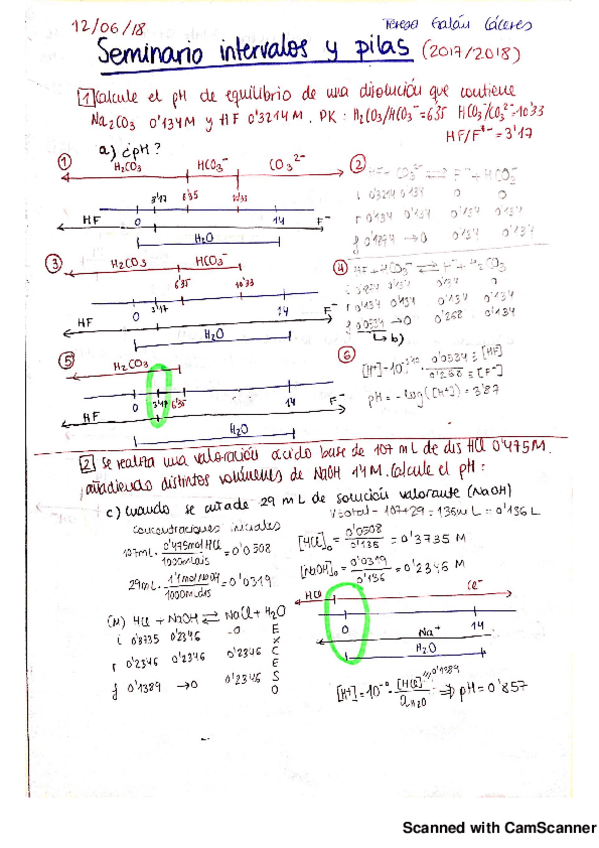 12/06/18 Teresa Galán Cáceres
Seminario intervalos y pilas (2017/2018)
1 Calcule el pH de equilibrio de una disolución que contiene
Na2CO3 0'134M y HF 0'3214M. PK: H2CO3/HCO3⁻=6'35 HCO3⁻/CO3²⁻=10'33
HF/F⁻=3'17
a) ¿pH?
① H2CO3 HCO3⁻ CO3²⁻
3'17 6'35 10'33
HF 0 14 F⁻
H2O
② HF + CO3²⁻ ⇌ F⁻ + HCO3⁻
i 0'3214 0'134 0 0
r 0'134 0'134 0'134 0'134
f 0'1874 →0 0'134 0'134
③ H2CO3 HCO3⁻
6'35 10'33
HF 0 3'17 14 F⁻
H2O
④ HF + HCO3⁻ ⇌ F⁻ + H2CO3
i 0'1874 0'134 0'134 0
r 0'134 0'134 0'134 0'134
f 0'0534 →0 0'268 0'134
b)
⑤ H2CO3
0 3'17 6'35 14
HF F⁻
H2O
⑥ [H⁺]=10 0'0534 ≡ [HF]
0'268 ≡ [F⁻]
pH = -log([H⁺]) = 3'87
2 Se realiza una valoración ácido base de 107 mL de dis HCl 0'475M.
añadiendo distintos volúmenes de NaOH 1'1M. Calcule el pH:
c) cuando se añade 29 mL de solución valorante (NaOH)
Vtotal = 107+29 = 136mL = 0'136L
concentraciones iniciales
107mL · 0'475mol HCl / 1000mL dis = 0'0508
29mL · 1'1mol NaOH / 1000mL dis = 0'0319
[HCl]₀ = 0'0508 / 0'136 = 0'3735 M
[NaOH]₀ = 0'0319 / 0'136 = 0'2346 M
(M) HCl + NaOH ⇌ NaCl + H2O
i 0'3735 0'2346 -0 E
X
r 0'2346 0'2346 0'2346 C
E
f 0'1389 →0 0'2346 S
O
HCl Cl⁻
0 14
Na⁺
H2O
[H⁺]=10⁻⁰ · [HCl] / a H2O 0'1389 ⇒ pH = 0'857
Scanned with CamScanner